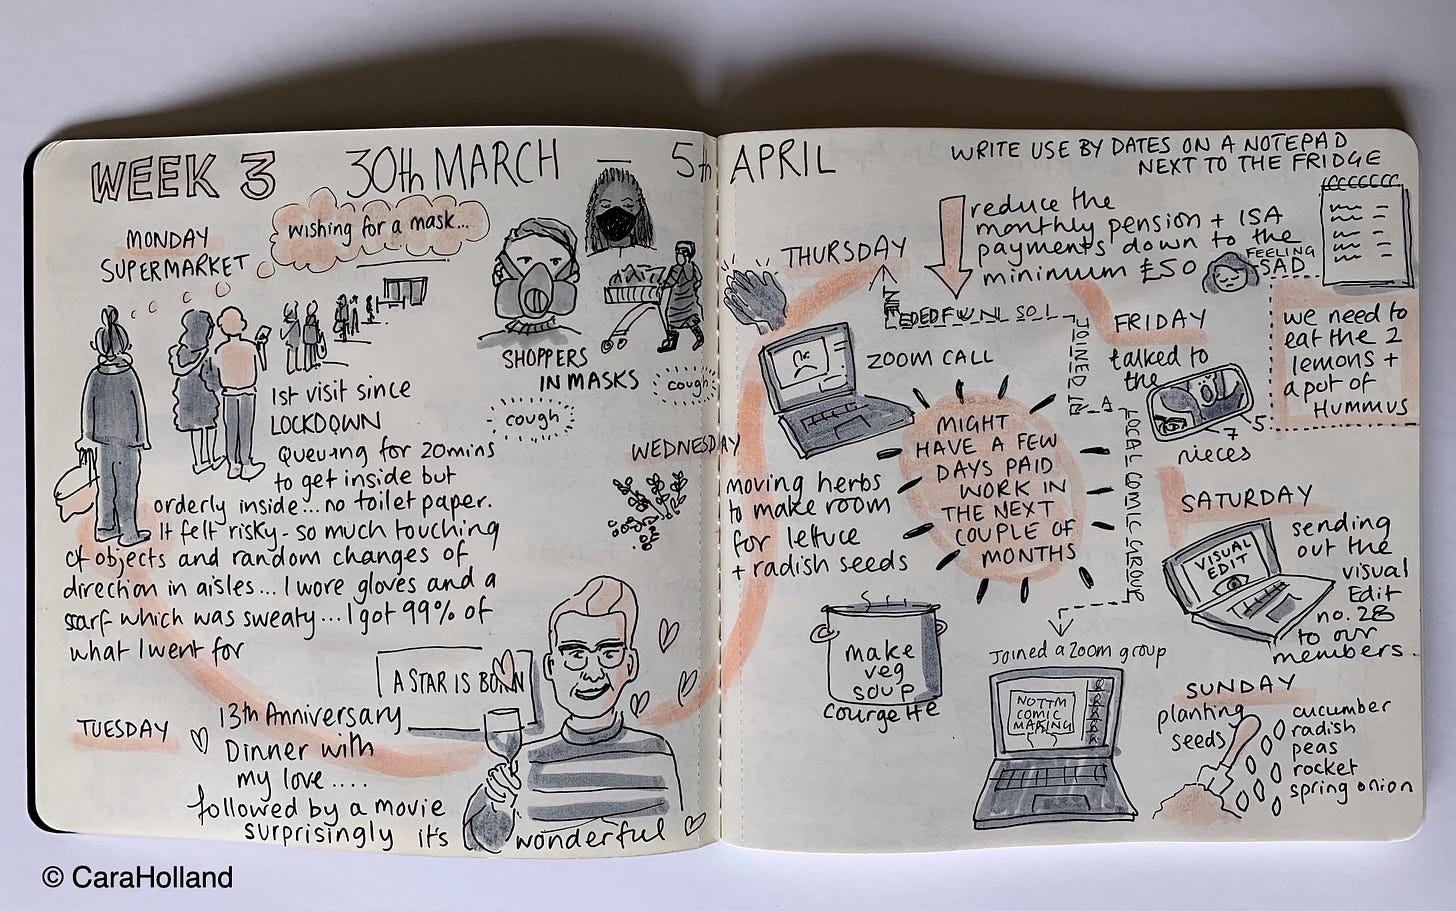 WEEK 3 30th MARCH – 5th APRIL
MONDAY
SUPERMARKET
wishing for a mask...
1st visit since
LOCKDOWN
Queuing for 20mins
to get inside but
orderly inside... no toilet paper.
It felt risky - so much touching
of objects and random changes of
direction in aisles... I wore gloves and a
scarf which was sweaty... I got 99% of
what I went for
SHOPPERS
IN MASKS
cough
cough
TUESDAY
13th Anniversary
Dinner with
my love....
followed by a movie
surprisingly it's wonderful
A STAR IS BORN
WEDNESDAY
moving herbs
to make room
for lettuce
+ radish seeds
make
veg
soup
courgette
THURSDAY
ZOOM CALL
reduce the
monthly pension + ISA
payments down to the
minimum £50
FEELING
SAD
MIGHT
HAVE A FEW
DAYS PAID
WORK IN
THE NEXT
COUPLE OF
MONTHS
JOINED IN
A
LOCAL COMIC GROUP
Joined a Zoom group
NOTTM
COMIC
MAKING
WRITE USE BY DATES ON A NOTEPAD
NEXT TO THE FRIDGE
we need to
eat the 2
lemons +
a pot of
HUMMUS
FRIDAY
talked to
the
nieces
SATURDAY
VISUAL
EDIT
sending
out the
visual
Edit
no. 28
to our
members.
SUNDAY
planting
seeds
cucumber
radish
peas
rocket
spring onion
© CaraHolland